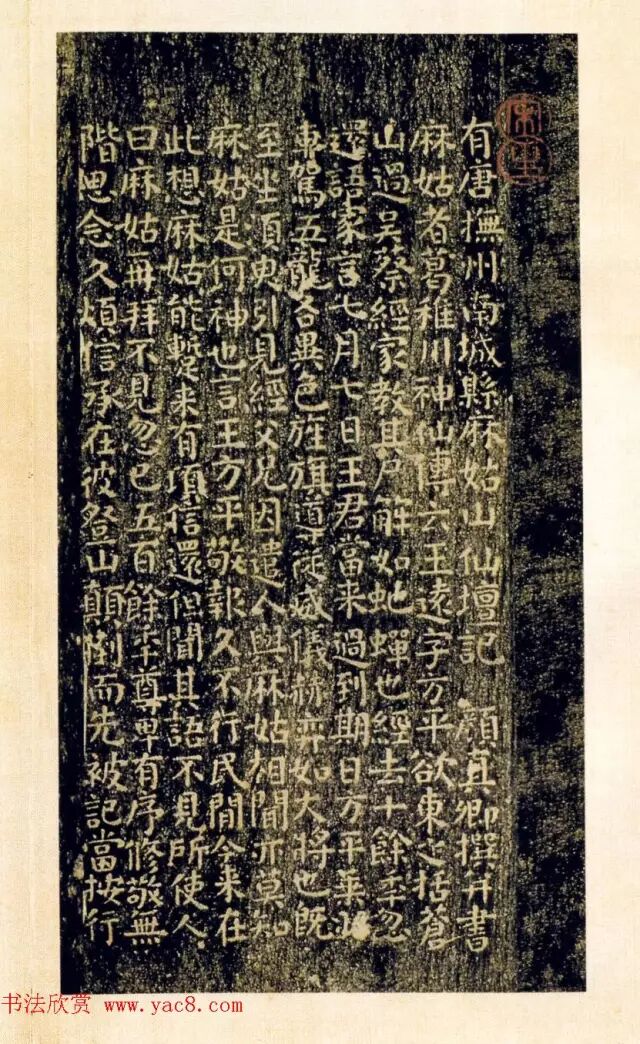 有唐撫州南城縣麻姑山仙壇記 顏真卿撰并書
麻姑者葛稚川神仙傳云王遠字方平欲東之括蒼
山過吳蔡經家教其尸解如虵蟬也經去十餘年忽
還語家言七月七日王君當来過到期日方平乗羽
車駕五龍各異色旌旗導従威儀赫弈如大將也既
至坐須臾引見經父兄因遣人與麻姑相聞亦莫知
麻姑是何神也言王方平敬報久不行民間今来在
此想麻姑能蹔来有頃信還但聞其語不見所使人
曰麻姑再拜不見忽已五百餘年尊卑有序修敬無
階思念久煩信承在彼登山顛倒而先被記當按行
书法欣赏 www.yac8.com